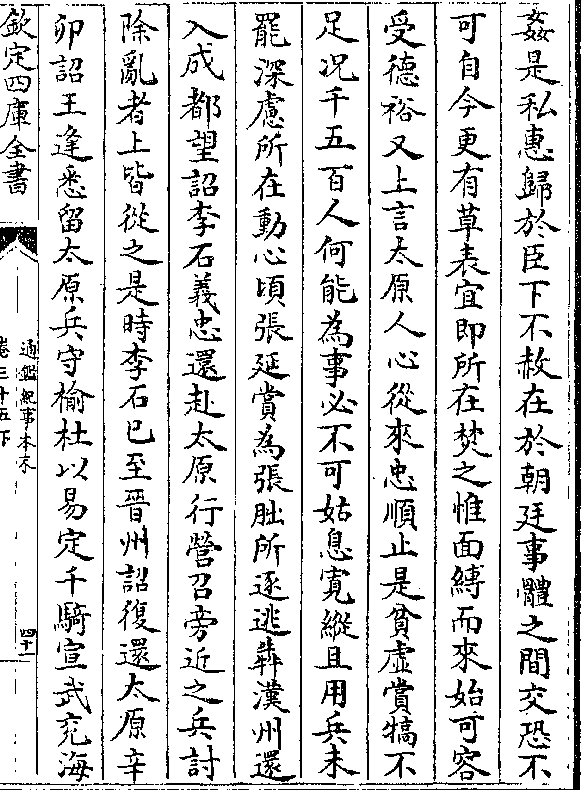 姦是私惠歸於臣下不赦在於朝廷事體之間交恐不
可自今更有草表宜即所在焚之惟面縛而來始可容
受德裕又上言太原人心從來忠順止是貧虛賞犒不
足況千五百人何能為事必不可姑息寛縱且用兵未
罷深慮所在動心頃張延賞為張朏所逐逃奔漢州還
入成都望詔李石義忠還赴太原行營召旁近之兵討
除亂者上皆從之是時李石已至晉州詔復還太原辛
卯詔王逢悉留太原兵守榆社以易定千騎宣武兖海
欽定四庫全書
通鑑紀事本末
卷三十五下
四十